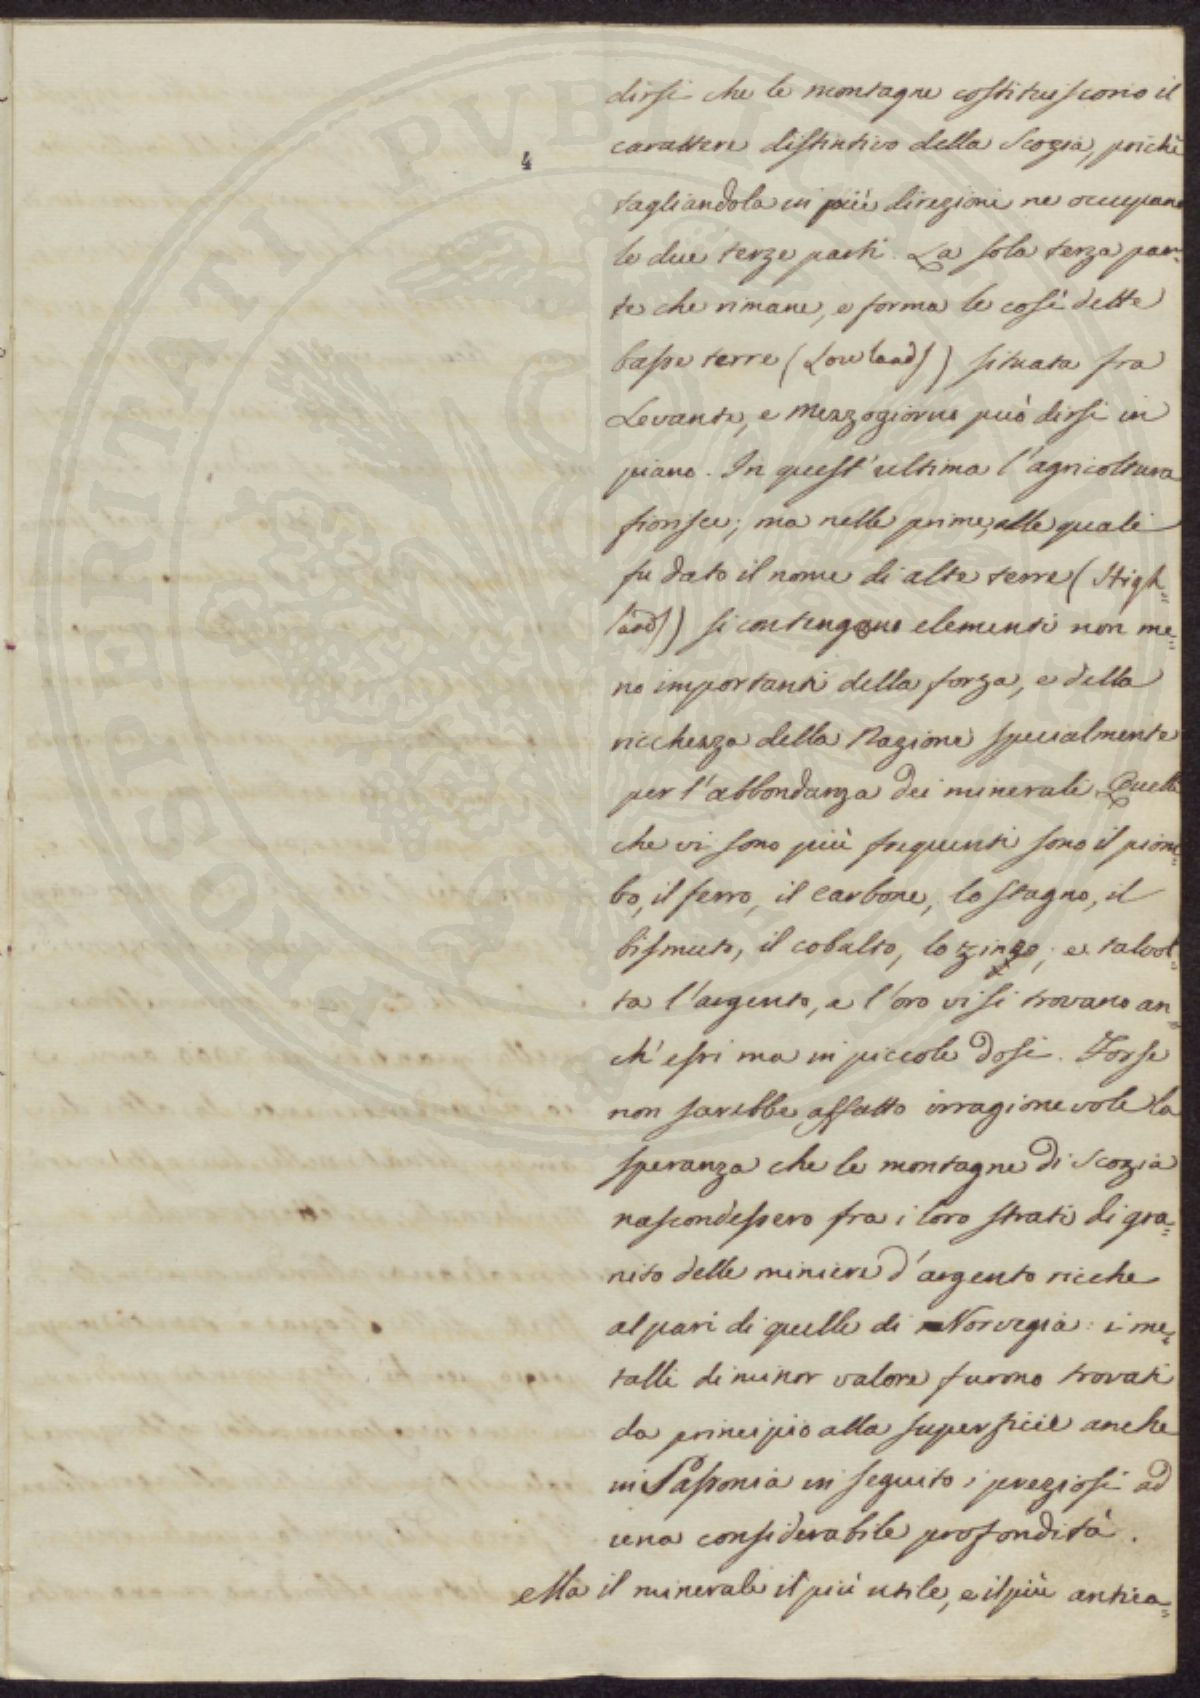 4
dirsi che le montagne costituiscono il
carattere distintivo della Scozia, poichè
tagliandola in più direzioni ne occupano
le due terze parti. La sola terza par=
te che rimane, e forma le così dette
basse terre (Lowlands) situata fra
Levante, e Mezzogiorno può dirsi in
piano. In quest'ultima l'agricoltura
fiorisce; ma nelle prime, alle quali
fu dato il nome di alte terre (High=
lands) si contengono elementi non me=
no importanti della forza, e della
ricchezza della Nazione specialmente
per l'abbondanza dei minerali. Quelli
che vi sono più frequenti sono il piom=
bo, il ferro, il carbone, lo stagno, il
bismuto, il cobalto, lo zingo; e talvol=
ta l'argento, e l'oro vi si trovano an=
ch'essi ma in piccole dosi. Forse
non sarebbe affatto irragionevole la
speranza che le montagne di Scozia
nascondessero fra i loro strati di gra=
nito delle miniere d'argento ricche
al pari di quelle di Norvegia: i me=
talli di minor valore furono trovati
da principio alla superficie anche
in Sassonia in seguito i preziosi ad
una considerabile profondità.
Ma il minerale il più utile, e il più antica=
PROSPERITATI PVBLICAE